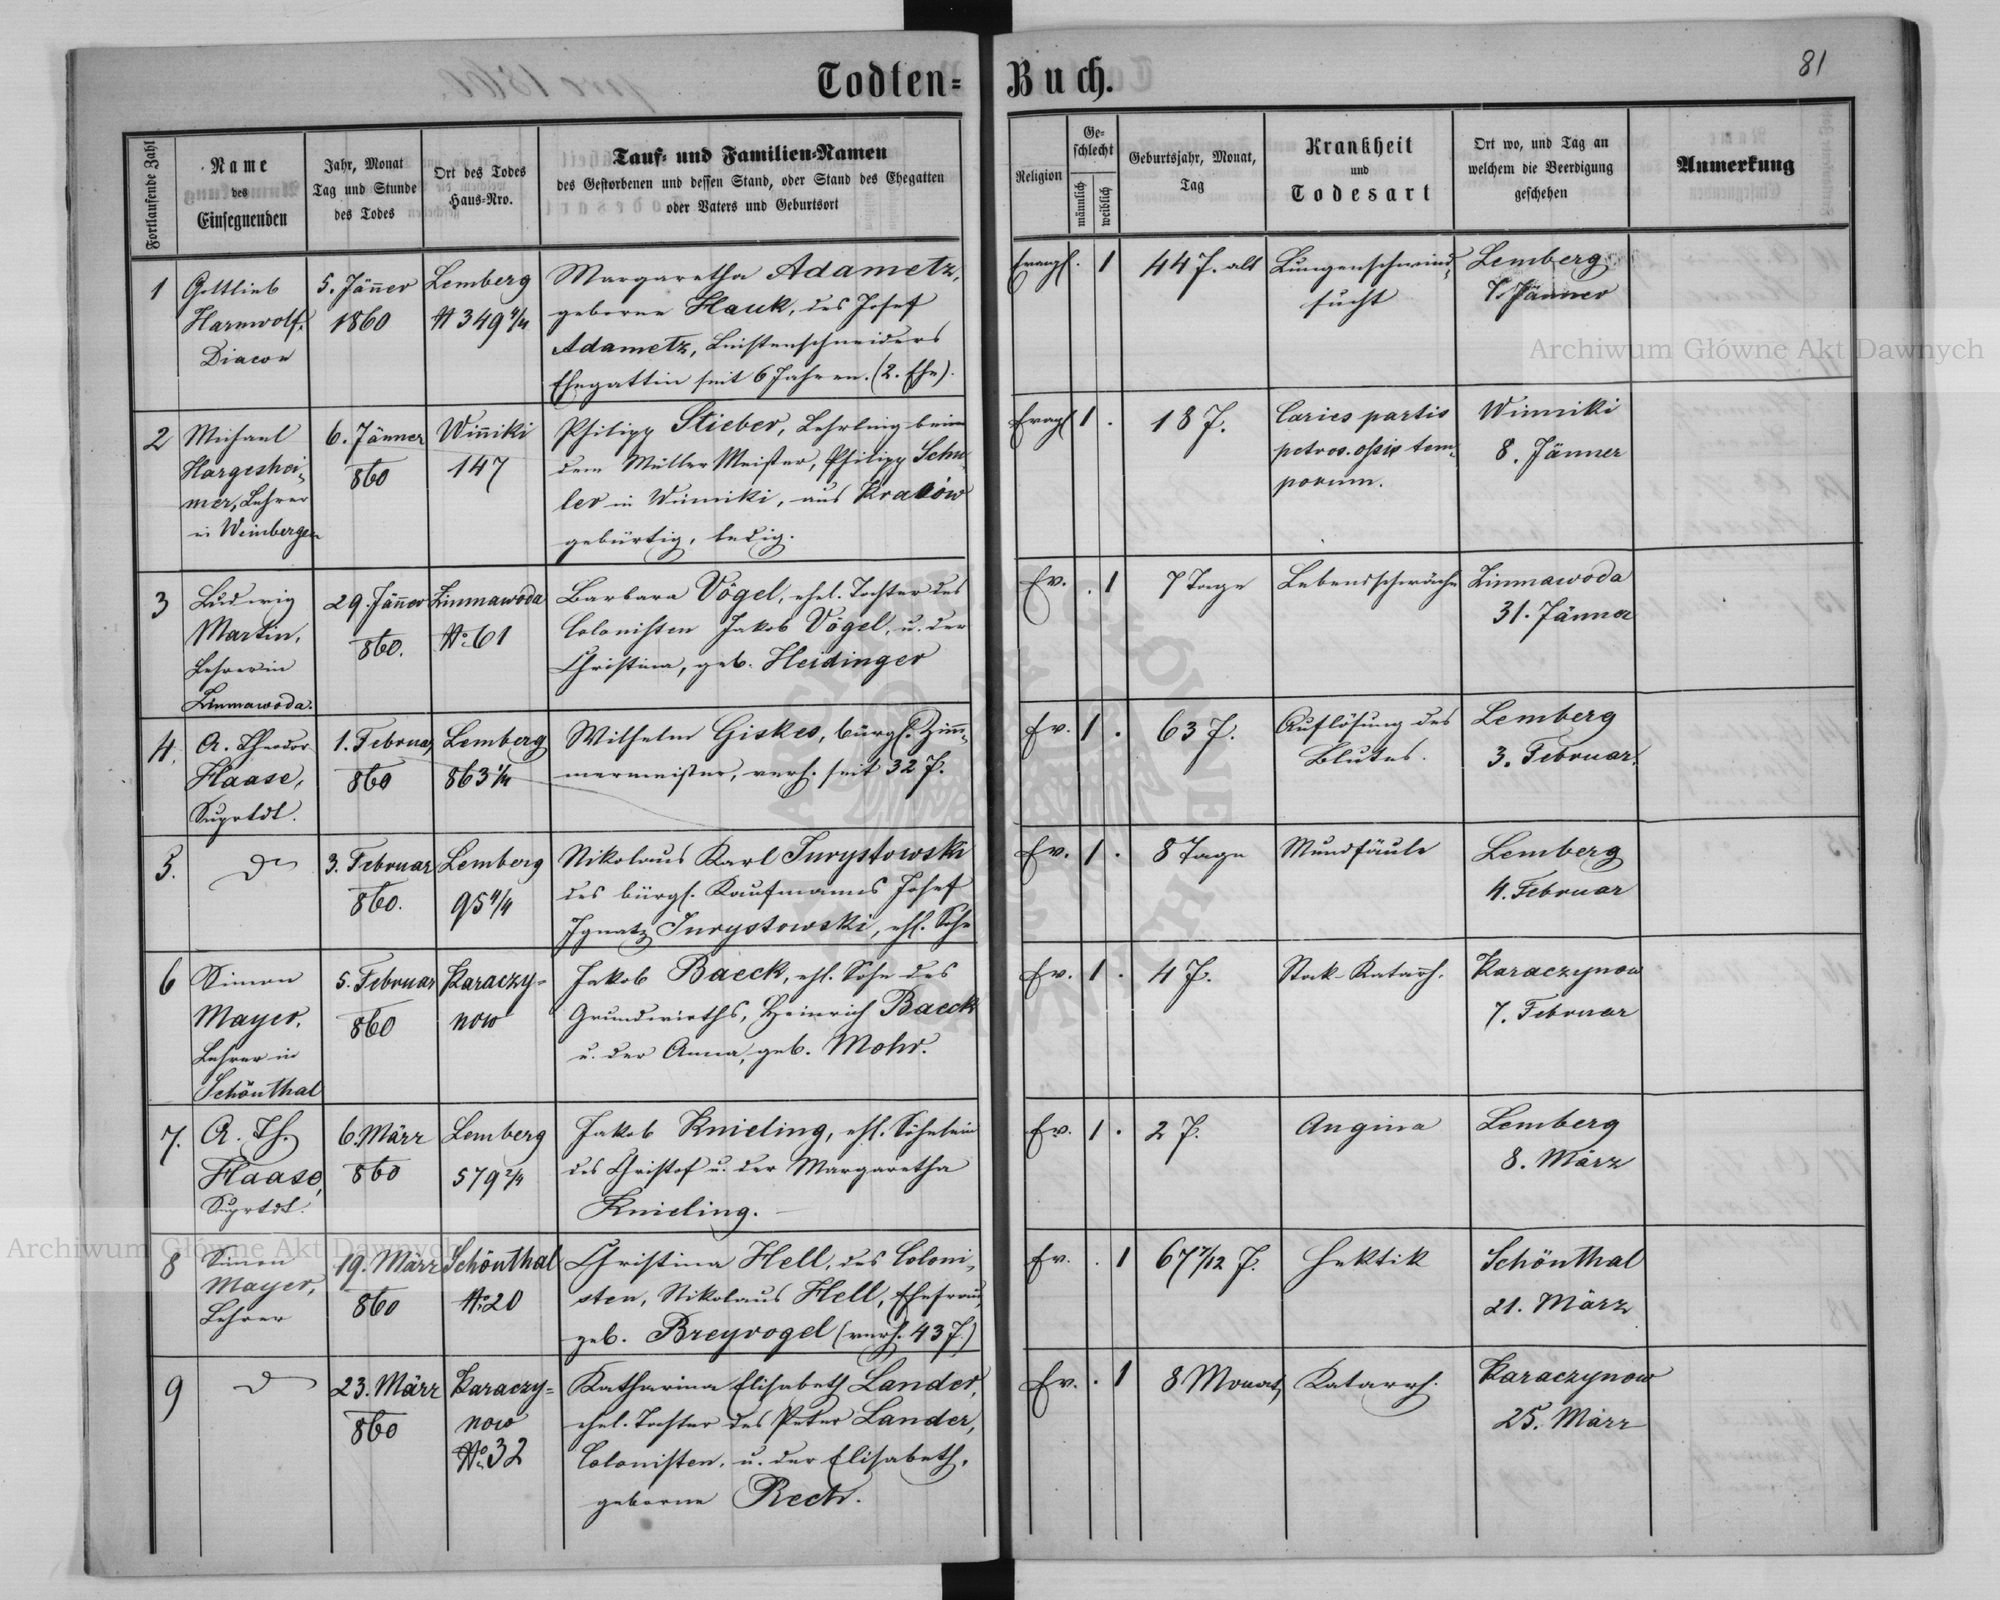 Todten=
Buch.
81
Fortlaufende Zahl
Name
des
Einsegnenden
Jahr, Monat
Tag und Stunde
des Todes
Ort des Todes
Haus-Nro.
Tauf- und Familien-Namen
des Gestorbenen und dessen Stand, oder Stand des Ehegatten
oder Vaters und Geburtsort
Religion
Ge-
schlecht
männlich
weiblich
Geburtsjahr, Monat,
Tag
Krankheit
und
Todesart
Ort wo, und Tag an
welchem die Beerdigung
geschehen
Anmerkung
1
Gottlieb
Harnwolf,
Diacon
5. Jänner
1860
Lemberg
N 349 4/4
Margaretha Adametz,
geborne Hauk, des Josef
Adametz, Leistenschneiders
Ehegattin seit 6 Jahren. (2. Ehe).
Evangl.
1
44 J. alt
Lungenschwind-
sucht
Lemberg
7. Jänner
2
Michael
Hargeshei-
mer, Lehrer
in Weinbergen
6. Jänner
860
Winniki
147
Philipp Stieber, Lehrling beim
dem Müller Meister, Philipp
ler in Winniki, aus Kraków
gebürtig, ledig.
Evagl
1 .
18 J.
Caries partis
petros. ossis tem-
porum.
Winniki
8. Jänner
3
Ludwig
Martin,
Lehrer in
Zimnawoda.
29. Jänner
860.
Zimnawoda
No. 61
Barbara Vögel, ehel. Tochter des
Colonisten Jakob Vögel, u. der
Christina, geb. Heidinger
Ev.
. 1
7 Tage
Lebensschwäche
Zimnawoda
31. Jänner
4.
A. Theodor
Haase,
Suprtdt.
1. Februar
860
Lemberg
863 1/4
Wilhelm Giskes, bürgl. Zim-
mermeister, verh. seit 32 J.
Ev.
1 .
63 J.
Auflösung des
Blutes.
Lemberg
3. Februar.
5.
do
3. Februar
860.
Lemberg
95 4/4
Nikolaus Karl Jurystowski
des bürgl. Kaufmanns Josef
Ignatz Jurystowski, ehl. Sohn
Ev.
1 .
8 Tage
Mundfäule
Lemberg
4. Februar
6
Simon
Mayer,
Lehrer in
Schönthal
5. Februar
860
Karaczy=
now
Jakob Baeck, ehl. Sohn des
Grundwirths, Heinrich Baeck
u. der Anna, geb. Mohr.
Ev.
1 .
4 J.
Stick-Katarrh.
Karaczynow
7. Februar
7.
A. Th.
Haase,
Suprtdt.
6. März
860
Lemberg
579 2/4
Jakob Knieling, ehl. Söhnlein
des Christof u. der Margaretha
Knieling.
Ev.
1 .
2 J.
Angina
Lemberg
8. März
8
Simon
Mayer,
Lehrer
19. März
860
Schönthal
No. 20
Christina Hell, des Coloni-
sten, Nikolaus Hell, Ehefrau,
geb. Breyvogel (verh. 43 J.)
Ev.
. 1
67 7/12 J.
Hektik
Schönthal
21. März
9
do
23. März
860
Karaczy=
now
No. 32
Katharina Elisabeth Lander,
ehel. Tochter des Peter Lander,
Colonisten, u. der Elisabeth,
geborne Rech.
Ev.
. 1
8 Monat
Katarrh.
Karaczynow
25. März
Archiwum Główne Akt Dawnych
Archiwum Główne Akt Dawnych